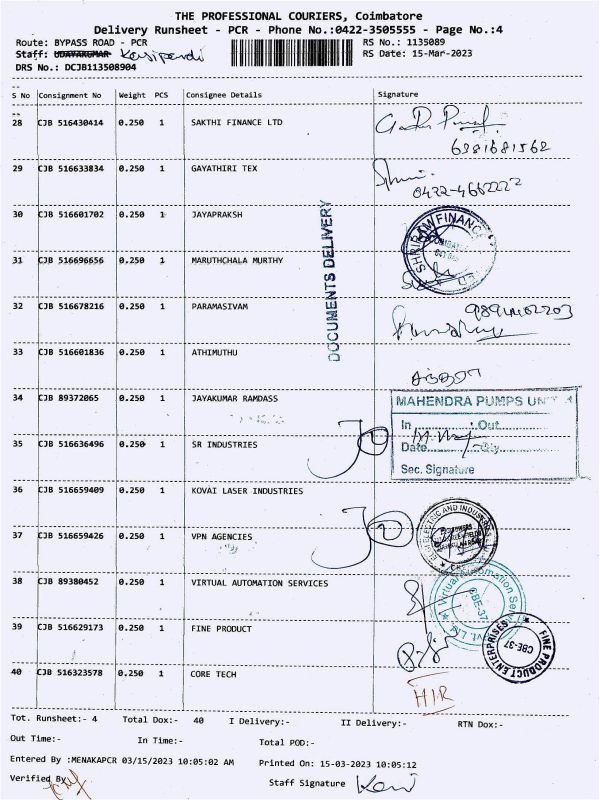 THE PROFESSIONAL COURIERS, Coimbatore
Delivery Runsheet - PCR - Phone No.:0422-3505555 - Page No.:4
Route: BYPASS ROAD - PCR
RS No.: 1135089
Staff: UDAYAKUMAR
RS Date: 15-Mar-2023
DRS No.: DCJB113508904
S No Consignment No Weight PCS Consignee Details Signature
28 CJB 516430414 0.250 1 SAKTHI FINANCE LTD
6381681562
29 CJB 516633834 0.250 1 GAYATHIRI TEX
0422-4662222
30 CJB 516601702 0.250 1 JAYAPRAKSH
SHRIRAM FINANCE
31 CJB 516696656 0.250 1 MARUTHCHALA MURTHY
DOCUMENTS DELIVERY
32 CJB 516678216 0.250 1 PARAMASIVAM
33 CJB 516601836 0.250 1 ATHIMUTHU
34 CJB 89372065 0.250 1 JAYAKUMAR RAMDASS
MAHENDRA PUMPS UNIT
In Out
Date
Sec. Signature
35 CJB 516636496 0.250 1 SR INDUSTRIES
36 CJB 516659409 0.250 1 KOVAI LASER INDUSTRIES
37 CJB 516659426 0.250 1 VPN AGENCIES
38 CJB 89380452 0.250 1 VIRTUAL AUTOMATION SERVICES
Virtual Automation
CBE-37
39 CJB 516629173 0.250 1 FINE PRODUCT
FINE PRODUCT ENTERPRISES
CBE-37
40 CJB 516323578 0.250 1 CORE TECH
HIR
Tot. Runsheet:- 4 Total Dox:- 40 I Delivery:- II Delivery:- RTN Dox:-
Out Time:- In Time:- Total POD:-
Entered By :MENAKAPCR 03/15/2023 10:05:02 AM Printed On: 15-03-2023 10:05:12
Verified By
Staff Signature